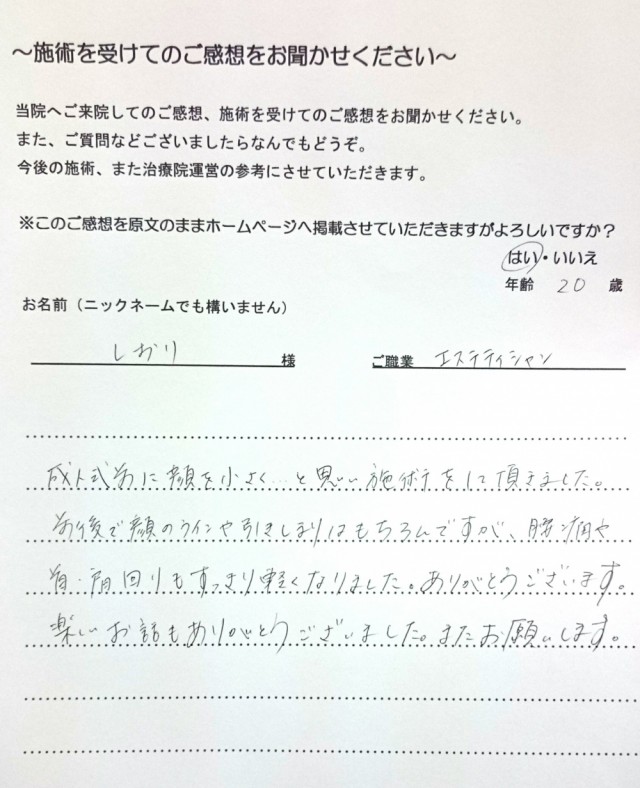 ～施術を受けてのご感想をお聞かせください～
当院へご来院してのご感想、施術を受けてのご感想をお聞かせください。
また、ご質問などございましたらなんでもどうぞ。
今後の施術、また治療院運営の参考にさせていただきます。
※このご感想を原文のままホームページへ掲載させていただきますがよろしいですか？
はい・いいえ
年齢 20 歳
お名前（ニックネームでも構いません）
しおり 様 ご職業 エステティシャン
成人式前に顔を小さく…と思い施術をして頂きました。
前後で顔のラインや引きしまりはもちろんですが、腰痛や
首・肩回りもすっきり軽くなりました。ありがとうございます。
楽しいお話もありがとうございました。またお願いします。